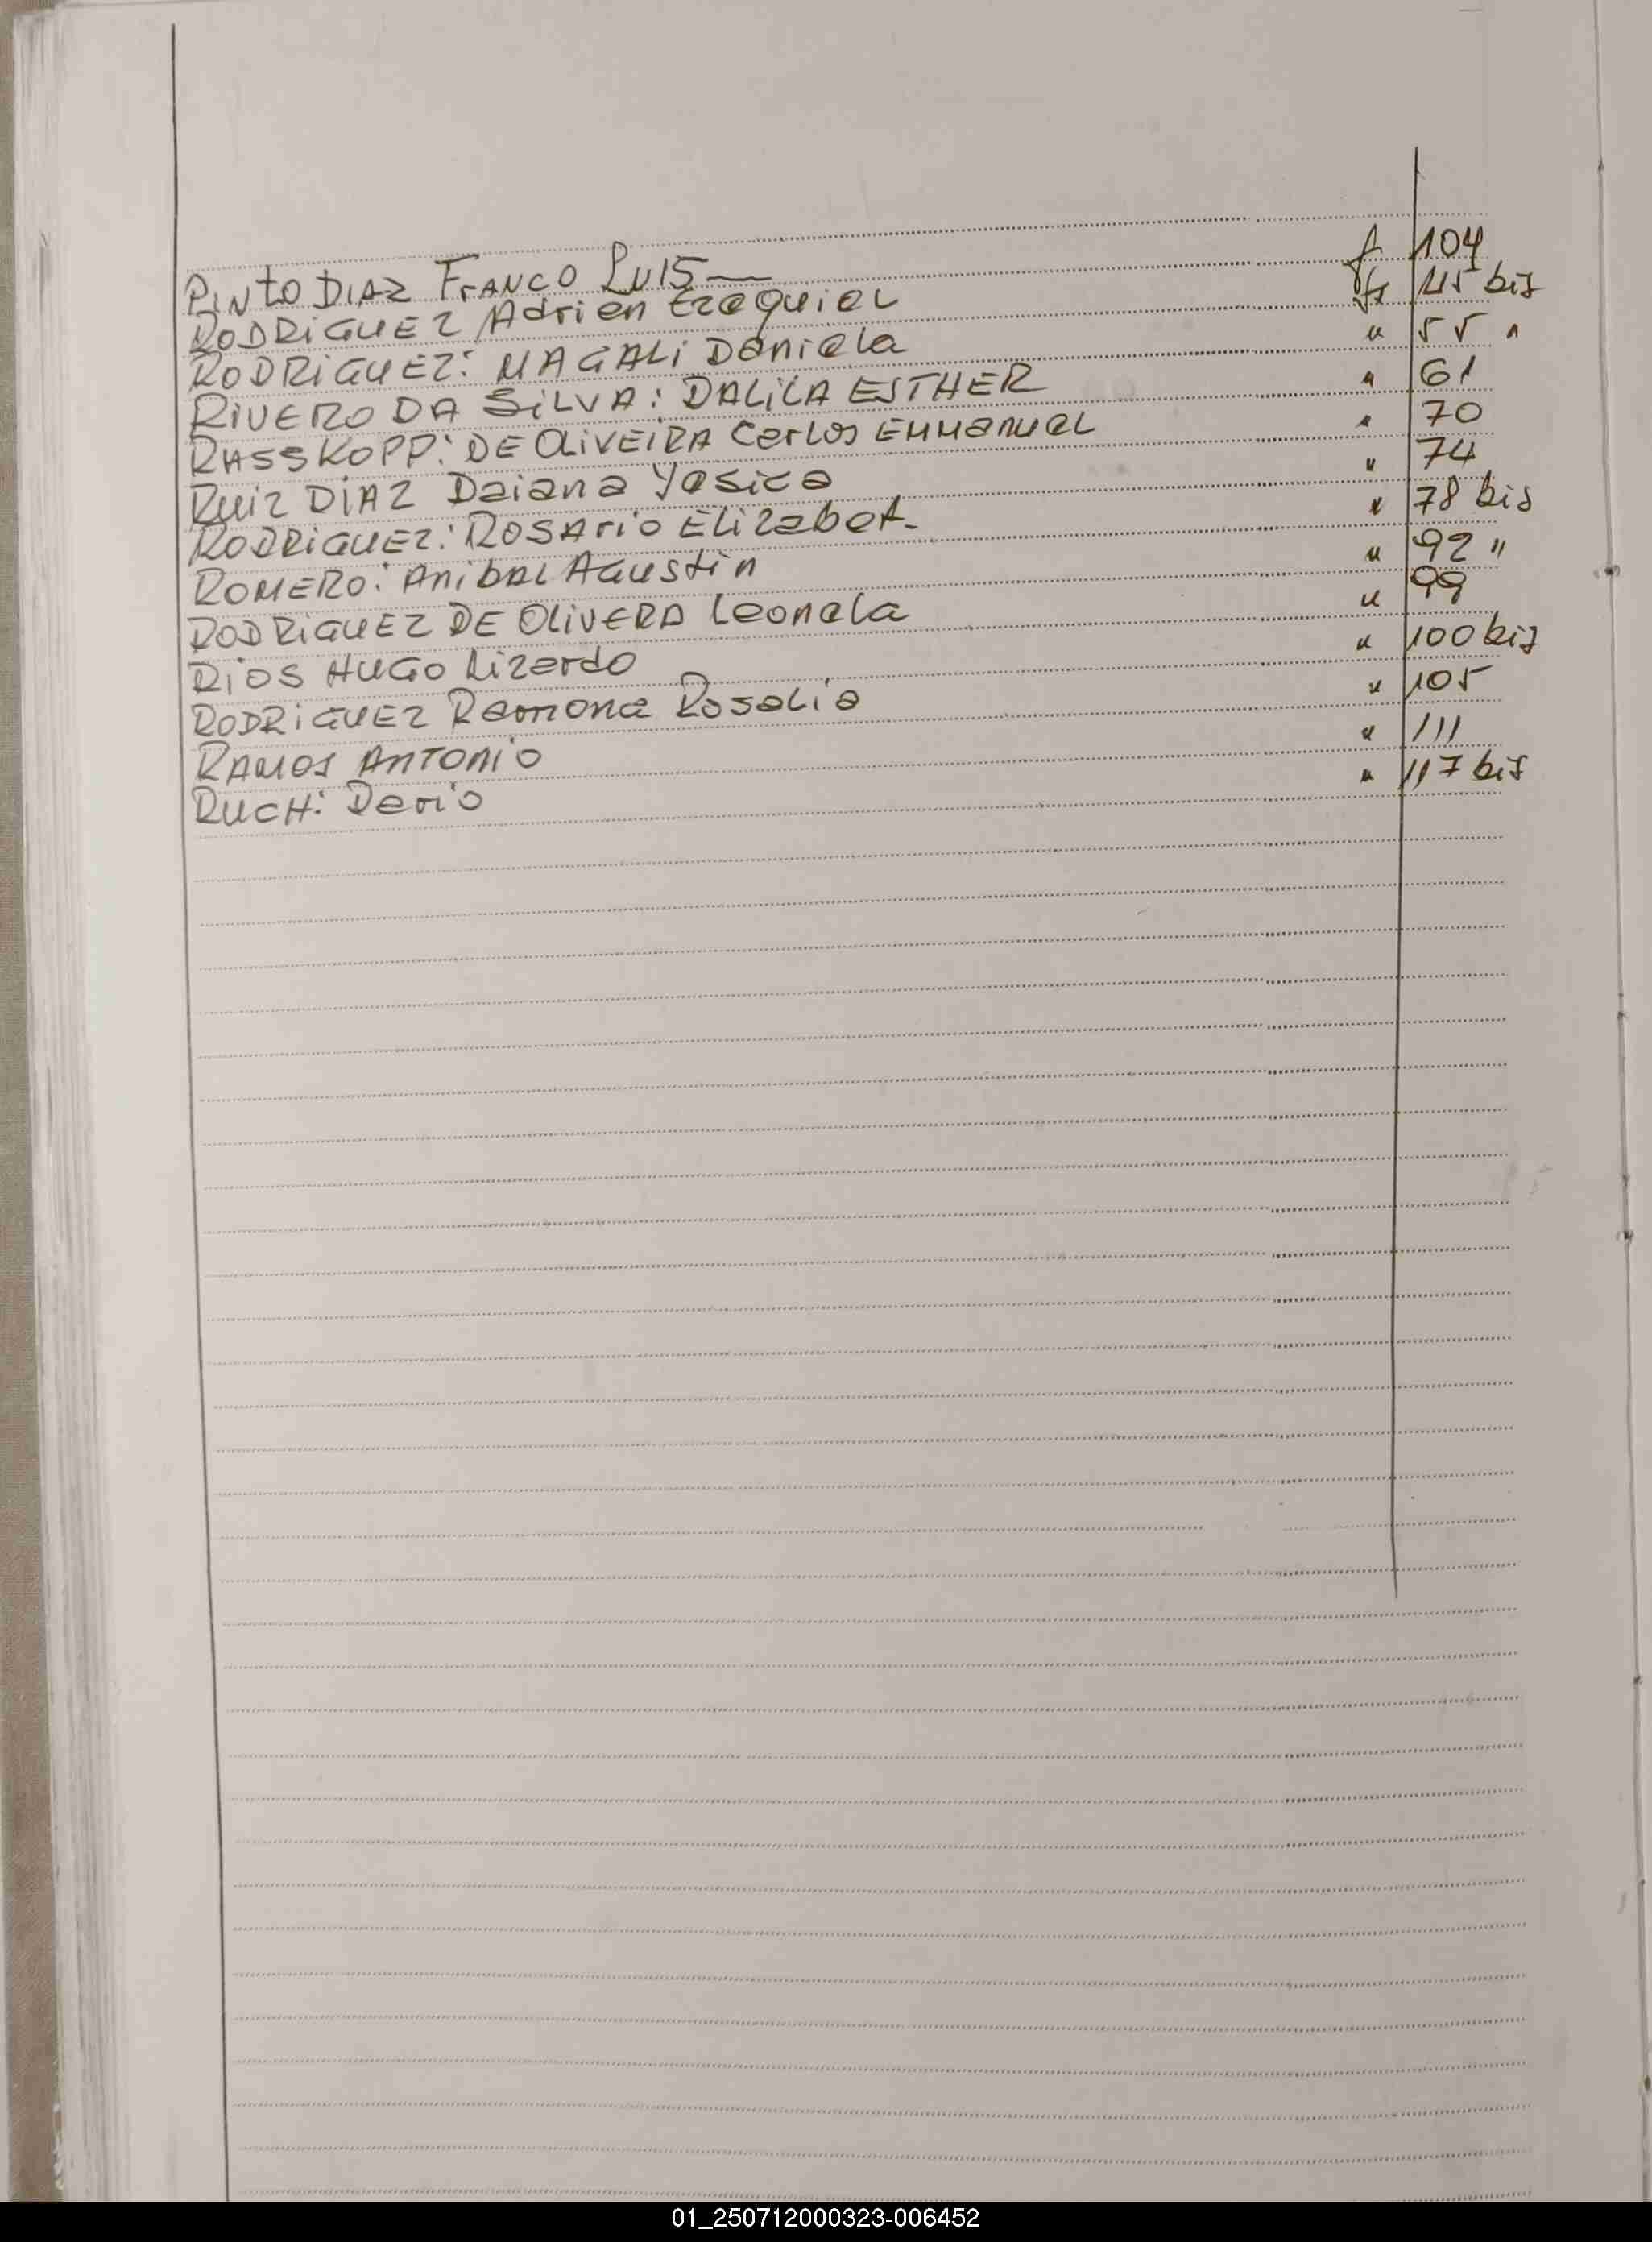 PINTO DIAZ FRANCO LUIS — f 104
RODRIGUEZ Adrien Ezequiel fs 115 bis
RODRIGUEZ: MAGALI Daniela " 55 "
RIVERO DA SILVA: DALILA ESTHER " 61
RASSKOPP: DE OLIVEIRA Carlos EMManuel " 70
Ruiz DIAZ Daiana Yesica " 74
RODRIGUEZ: ROSArio Elizabet. " 78 bis
ROMERO: AnibaL AGustin " 92 "
RODRIGUEZ DE OLIVERA Leonela " 99
RIOS HUGO Lizardo " 100 bis
RODRIGUEZ Ramona Rosalia " 105
RAMOS ANTONIO " 111
RUCH: Dario " 117 bis
01_250712000323-006452